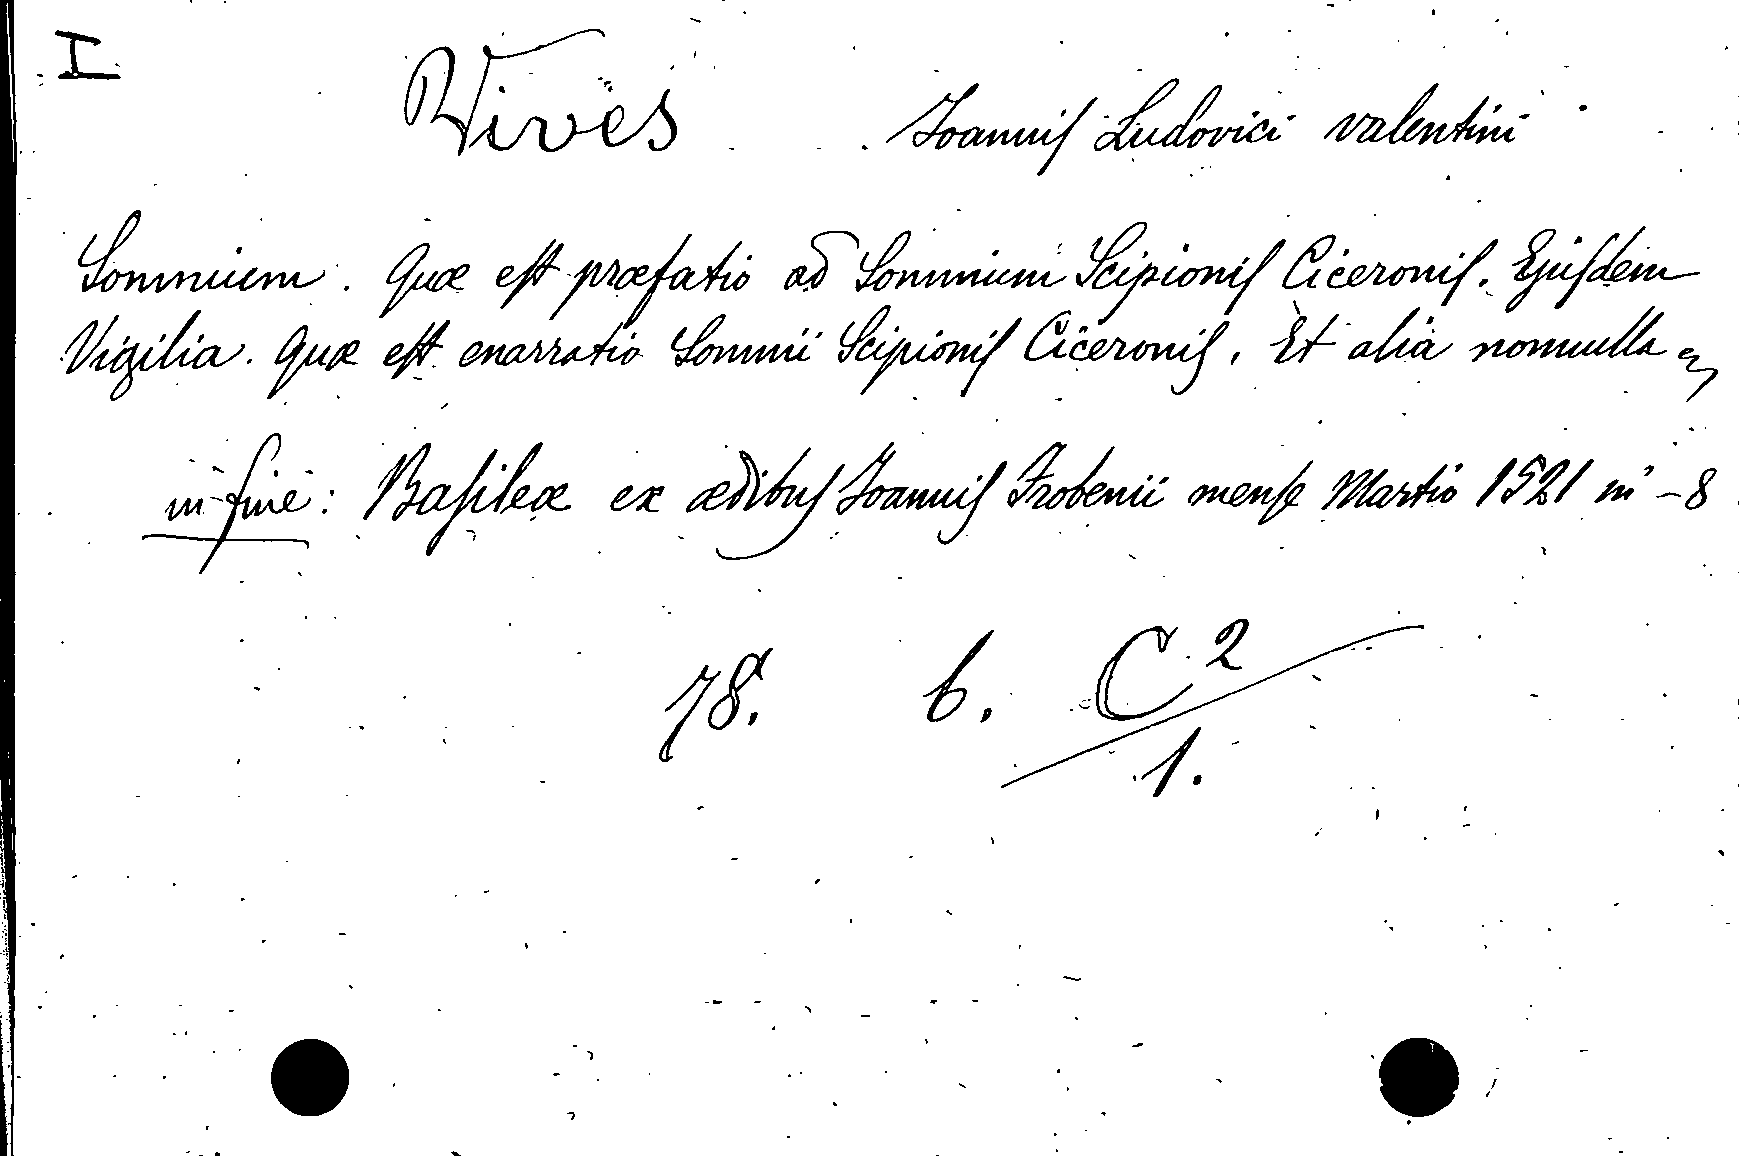 I
Vives Joannis Ludovici valentini
Somnium. Quæ est præfatio ad Somnium Scipionis Ciceronis. Ejusdem
Vigilia. Quæ est enarratio Somnii Scipionis Ciceronis. Et alia nonnulla
in fine: Basileæ ex ædibus Joannis Frobenii mense Martio 1521 in-8
78. b. C²/1.